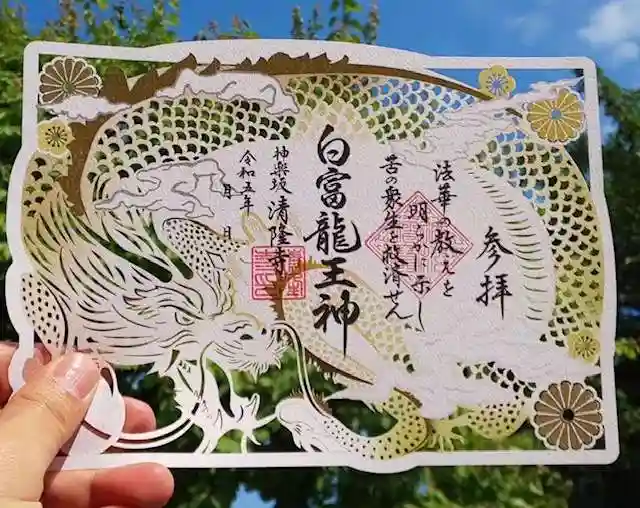 参拝
法華の教えを
明らかに示し
苦の衆生を救済せん
白富龍王神
神楽坂 清隆寺
令和五年 月 日